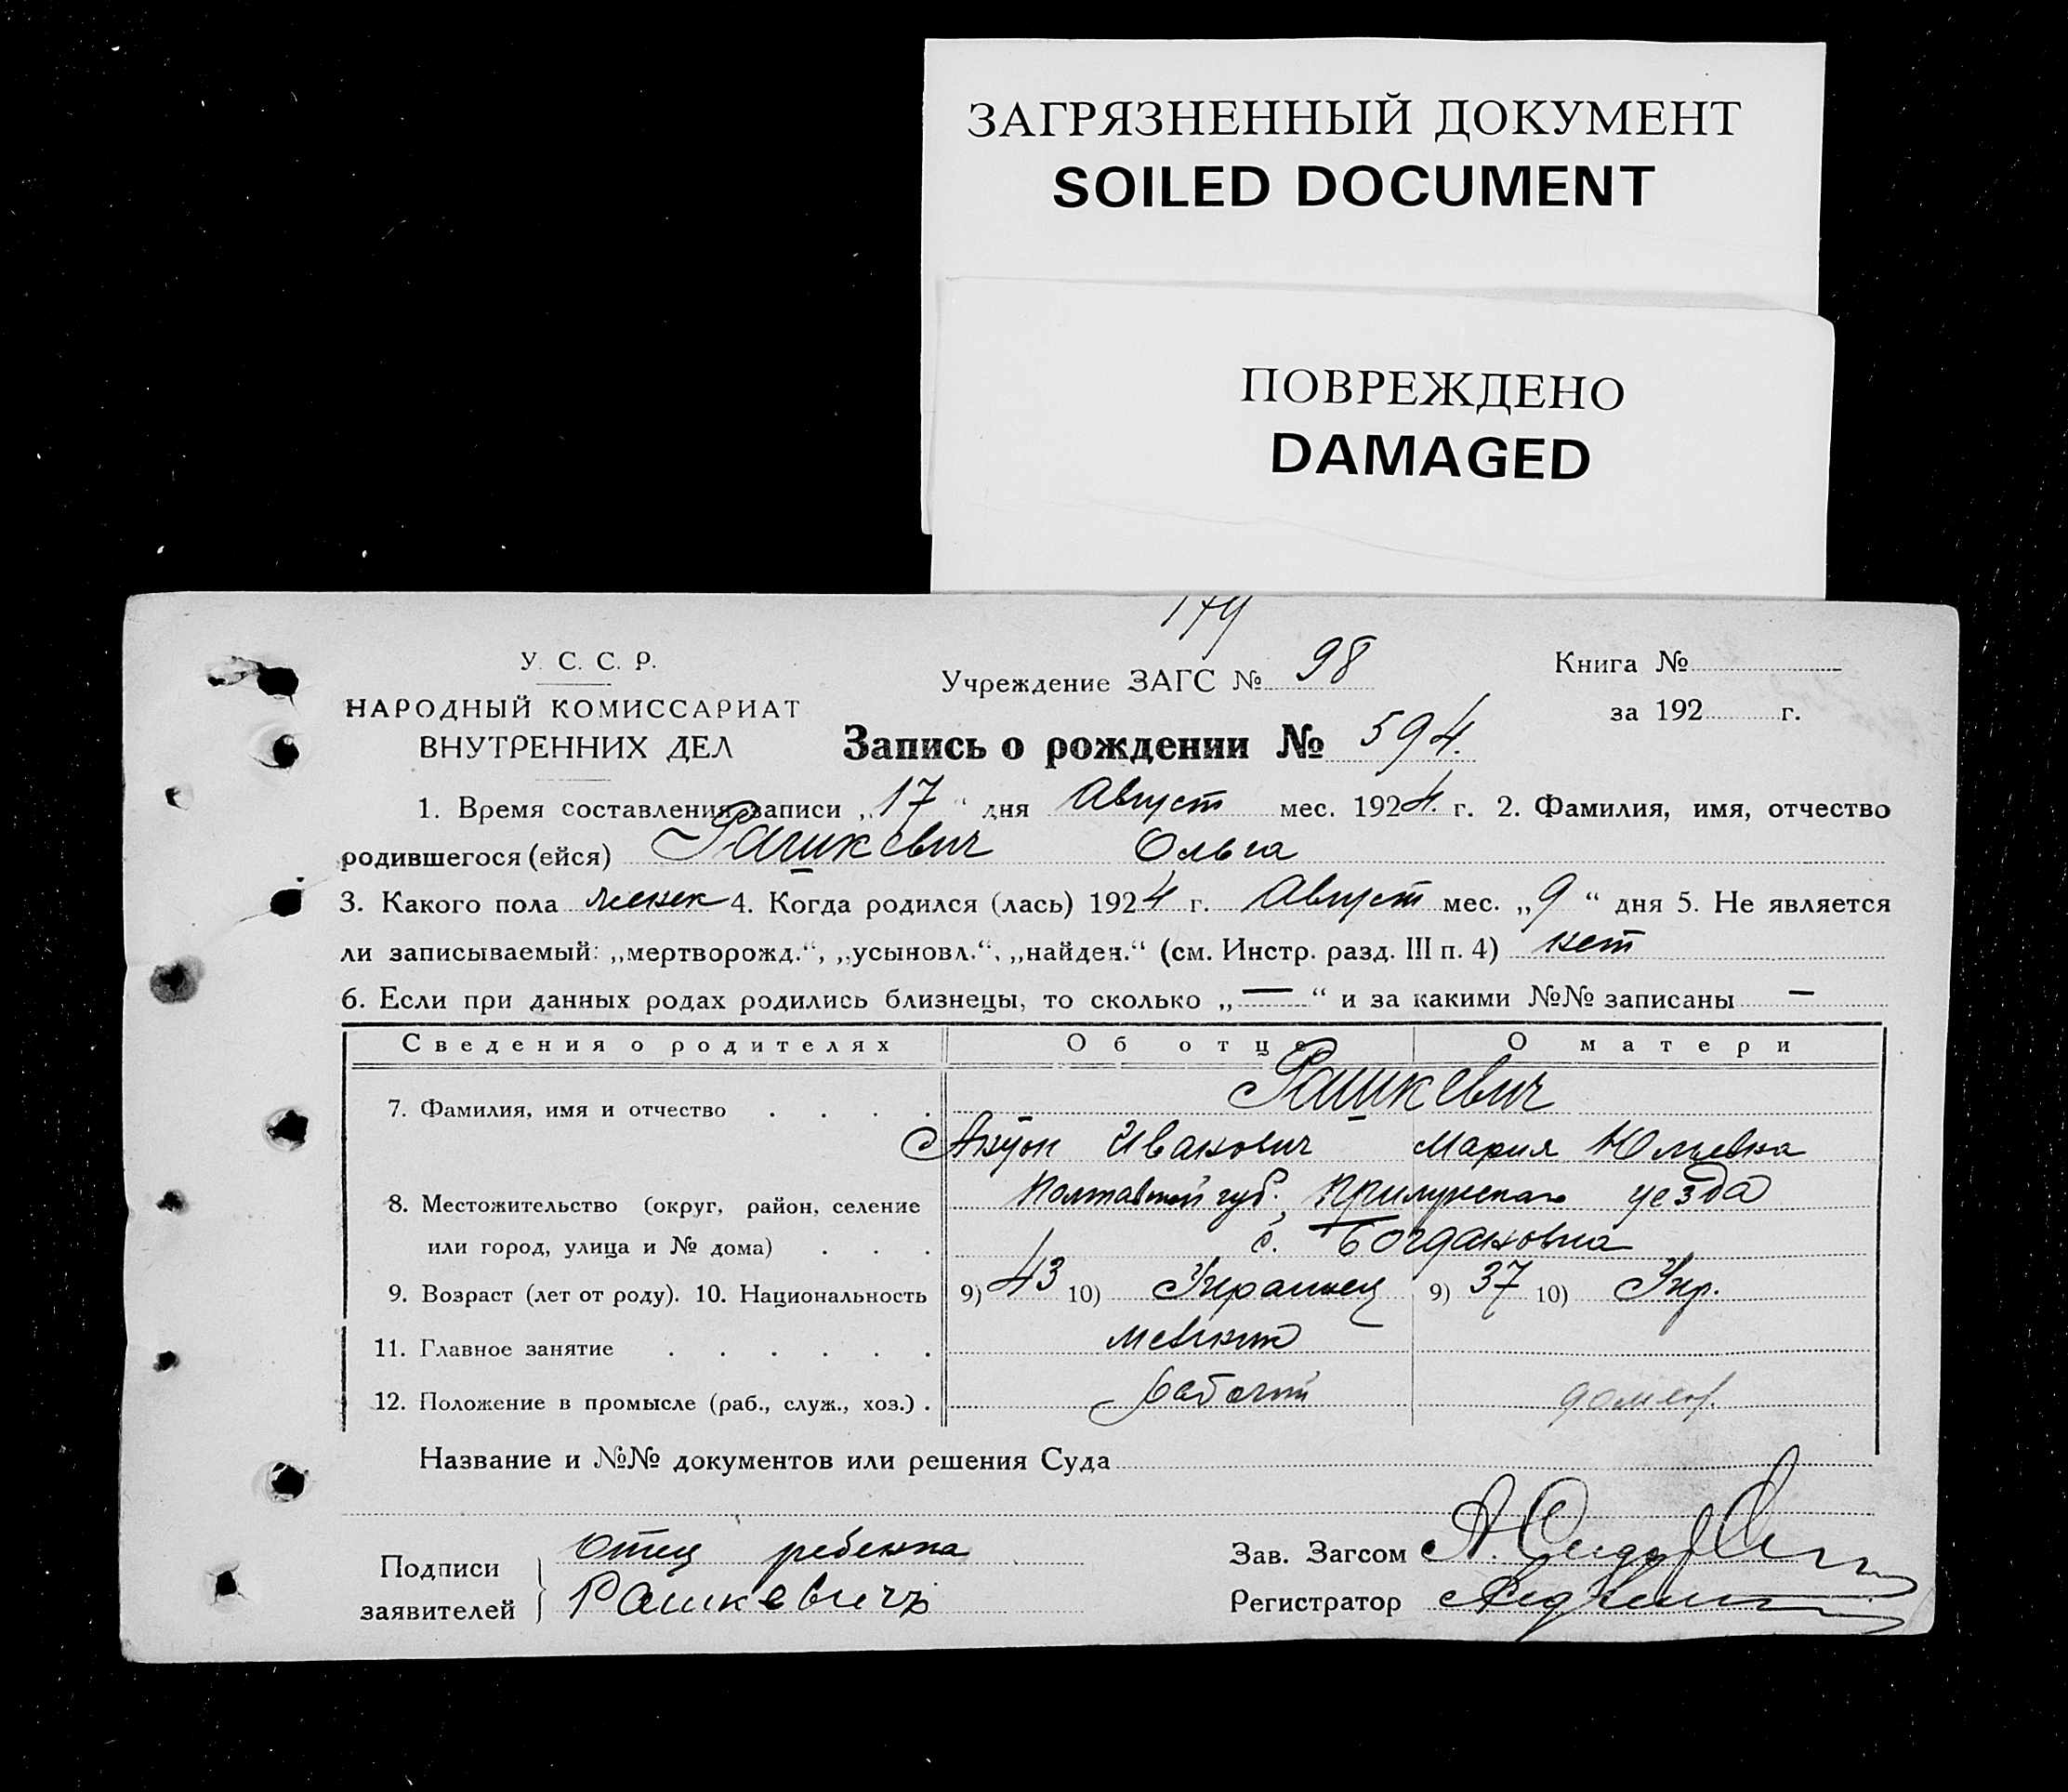 ЗАГРЯЗНЕННЫЙ ДОКУМЕНТ
SOILED DOCUMENT
ПОВРЕЖДЕНО
DAMAGED
У. С. С. Р.
НАРОДНЫЙ КОМИССАРИАТ
ВНУТРЕННИХ ДЕЛ
Учреждение ЗАГС № 98
Книга №
за 192 г.
Запись о рождении № 594.
1. Время составления записи „17“ дня Август мес. 1924. г. 2. Фамилия, имя, отчество
родившегося (ейся) Рашкевич Ольга
3. Какого пола женск 4. Когда родился (лась) 1924 г. Август мес. „9“ дня 5. Не является
ли записываемый: „мертворожд.“, „усыновл.“, „найден.“ (см. Инстр. разд. III п. 4) нет
6. Если при данных родах родились близнецы, то сколько „—“ и за какими №№ записаны –
Сведения о родителях Об отце О матери
7. Фамилия, имя и отчество . . . . Рашкевич
Иванович Мария Юльевна
8. Местожительство (округ, район, селение Полтавской губ. Прилукского уезда
или город, улица и № дома) . . . с. Богдановка
9. Возраст (лет от роду). 10. Национальность 9) 43 10) Украинец 9) 37 10) Укр.
11. Главное занятие . . . . . .
12. Положение в промысле (раб., служ., хоз.) . рабочий
Название и №№ документов или решения Суда
Подписи заявителей
Отец ребенка
Рашкевичъ
Зав. Загсом
Регистратор